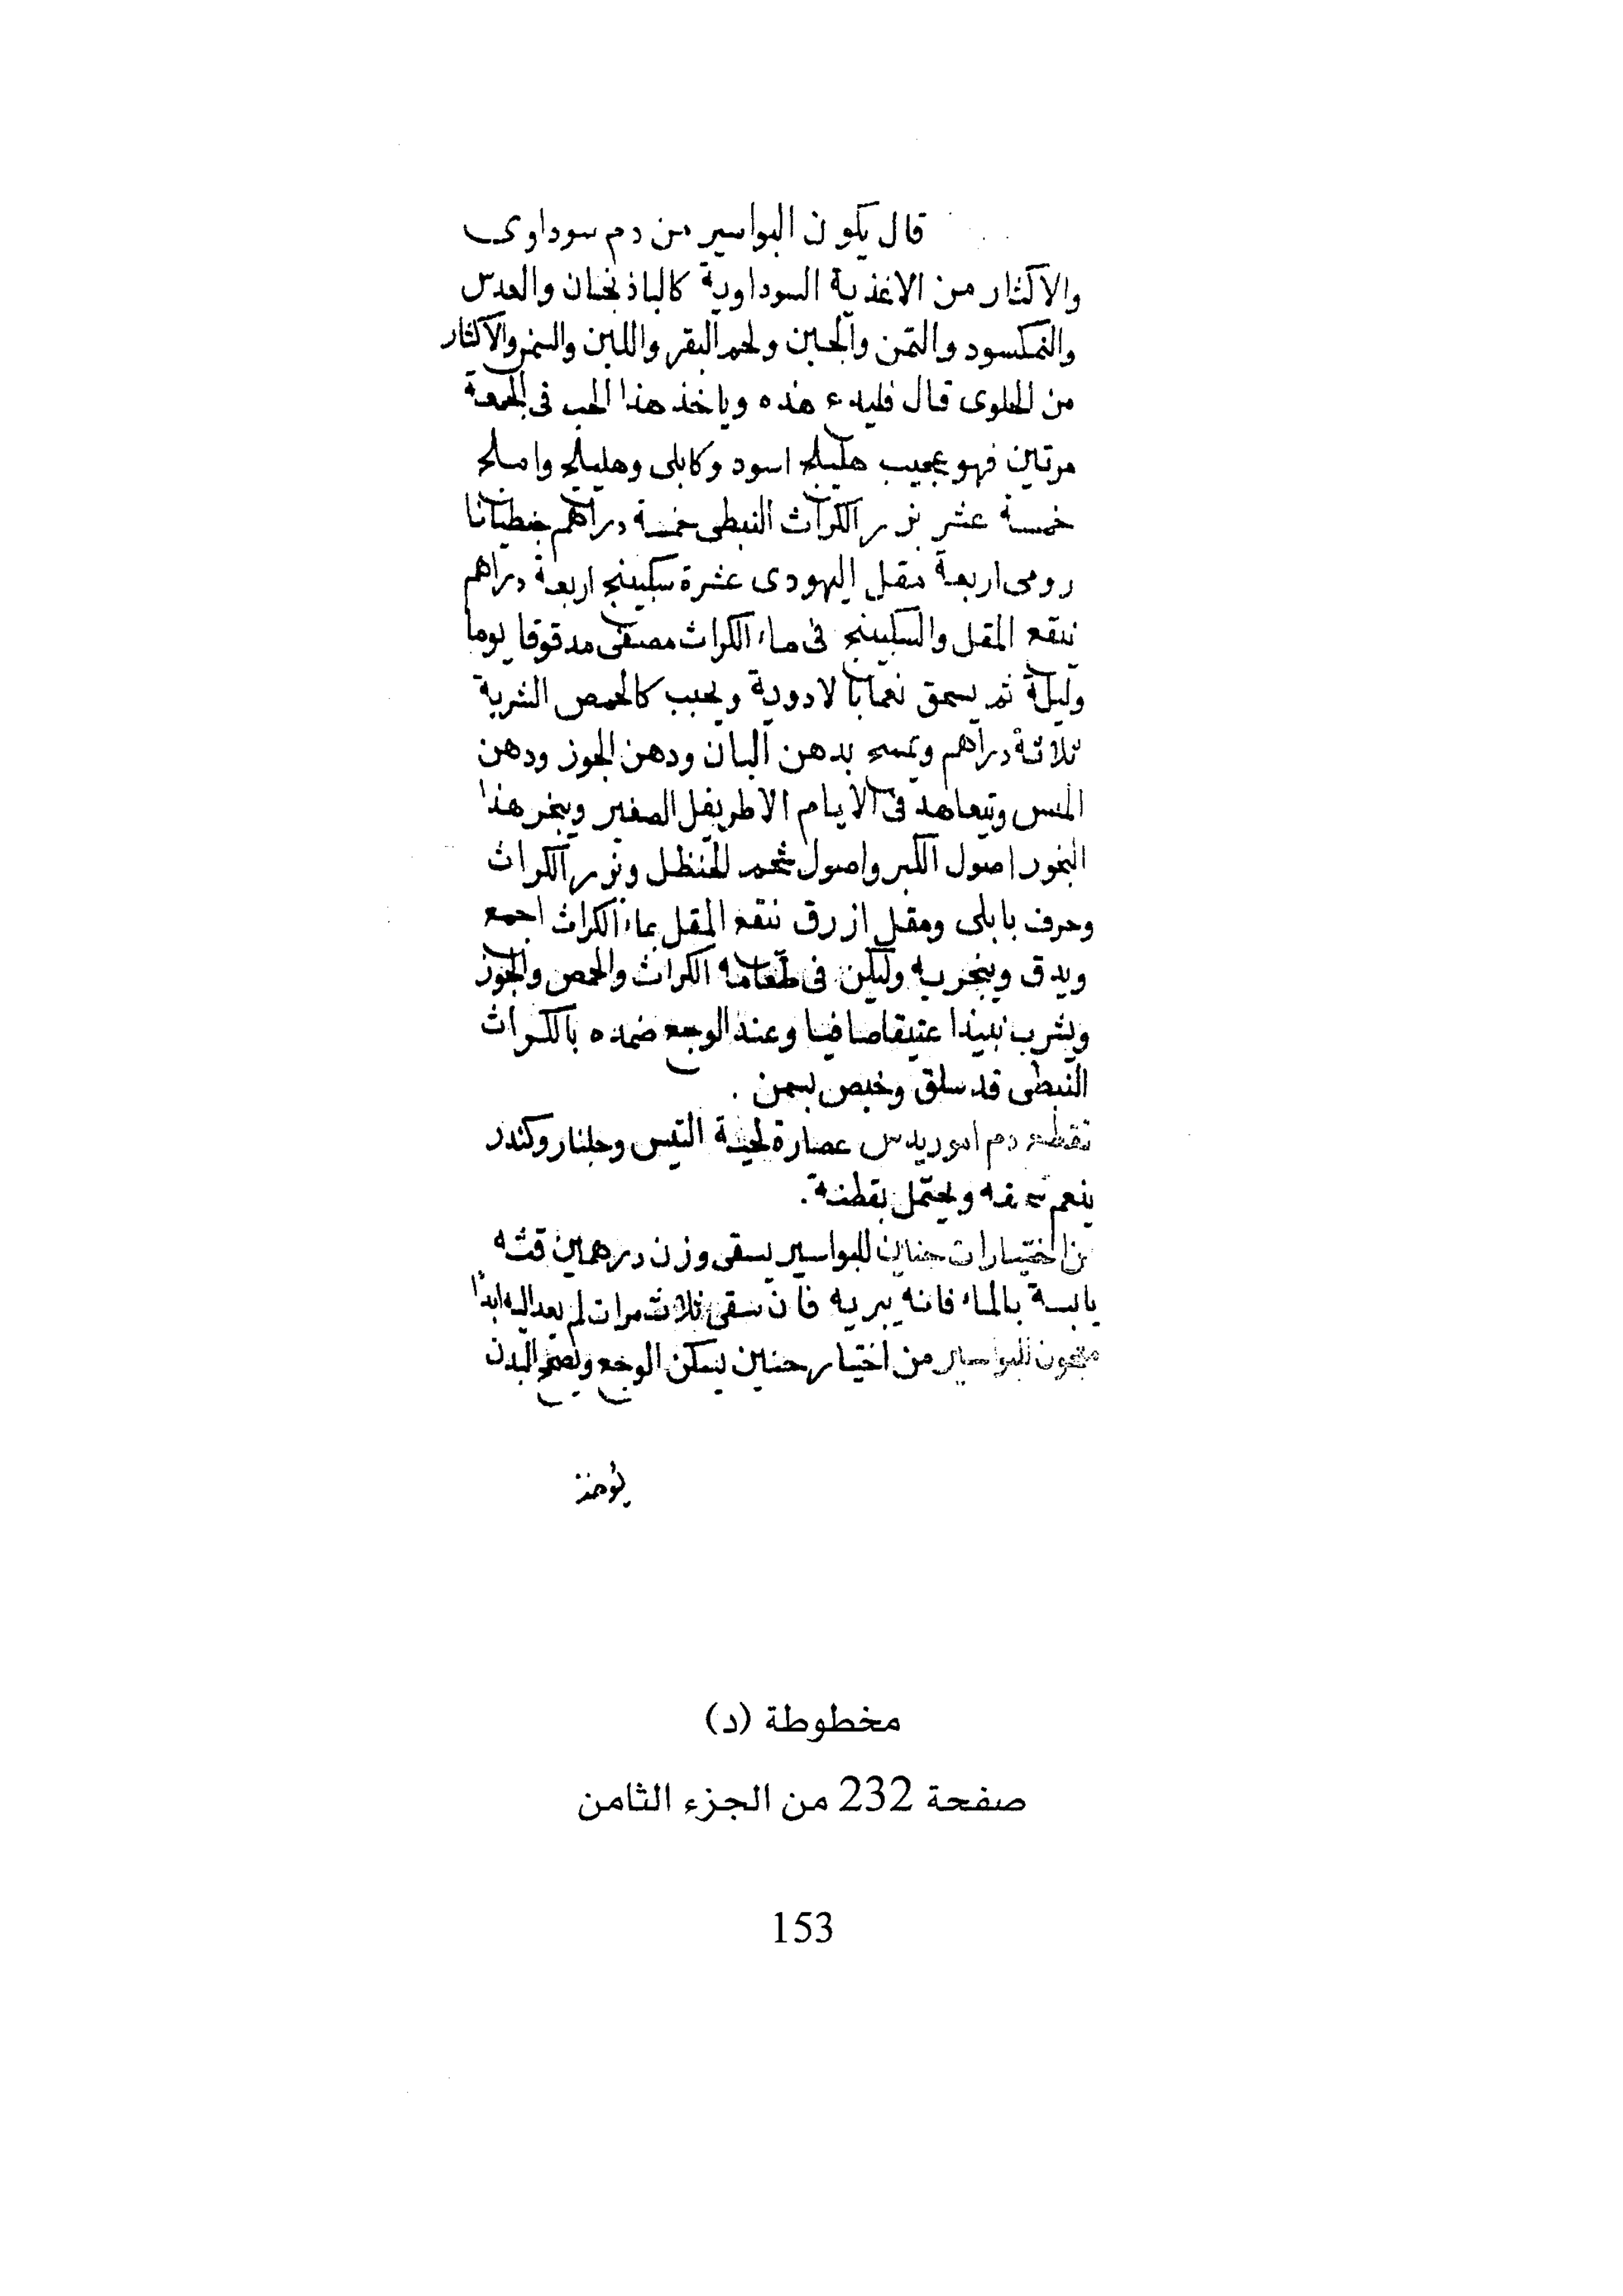 قال يكون البواسير من دم سوداوى
والاكثار من الاغذية السوداوية كالباذنجان والعدس
والنمكسود والتمر والجبن ولحم البقر واللبن والسمن والاكثار
من الحلوى قال فليدع هذه وياخذ هذا الحب فى الجمعة
مرتين فهو عجيب هليلج اسود وكابلى وهليلج واملج
خمسة عشر بزر الكراث النبطى خمسة دراهم جنطيانا
رومى اربعة مقل اليهودى عشرة سكبينج اربعة دراهم
ينقع المقل والسكبينج فى ماء الكراث مصفى مدقوقا يوما
وليلة ثم يسحق نعما بالادوية ويحبب كالحمص الشربة
ثلاثة دراهم ويمسح بدهن البان ودهن الجوز ودهن
المس ويتعاهد فى الايام الاطريفل الصغير ويبخر هذا
البخور اصول الكبر واصول شحم الحنظل وبزر الكراث
وحرف بابلى ومقل ازرق ينقع المقل بماء الكراث اجمع
ويدق ويبخر به وليكن فى طعامه الكراث والحمص والجوز
ويشرب نبيذا عتيقا صافيا وعند الوجع ضمده بالكراث
النبطى قد سلق وخبص بسمن .
تقطع دم عصارة لحية التيس وجلنار وكندر
ينعم سحقه ويحتمل بقطنة.
من اختيارات حنين للبواسير يسقى وزن درهمين قثه
يابسة بالماء فانه يبريه فان سقى ثلاث مرات لم يعد اليه ابدا
معجون للبواسير من اختيار حنين يسكن الوجع ويصح البدن
يؤخذ
مخطوطة (د)
صفحة 232 من الجزء الثامن
153